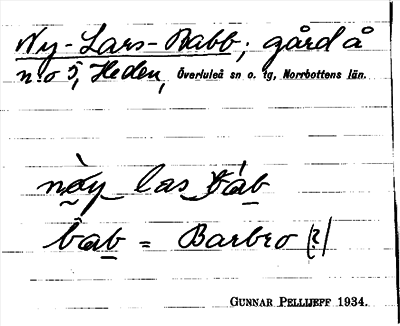 Ny-Lars-Babb, gård å
no 5, Heden, Överluleå sn o. tg, Norrbottens län.
las
= Barbro (?)
GUNNAR PELLIJEFF 1934.